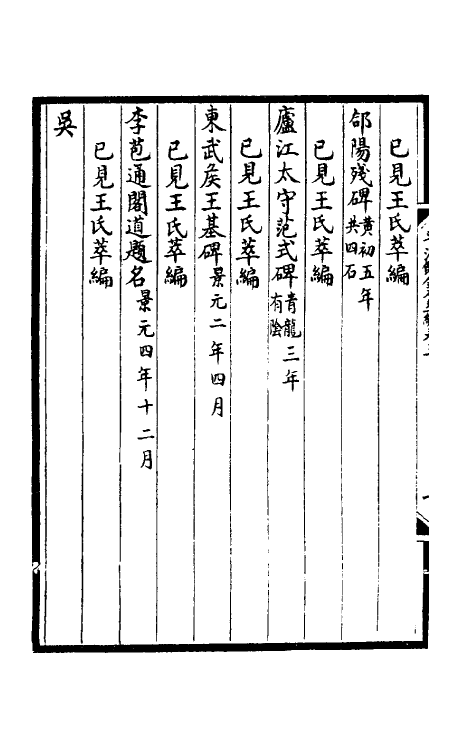 已見王氏萃編
郃陽殘碑黃初五年共四石
已見王氏萃編
廬江太守范式碑青龍三年有陰
已見王氏萃編
東武矦王基碑景元二年四月
已見王氏萃編
李苞通閣道題名景元四年十二月
已見王氏萃編
吳